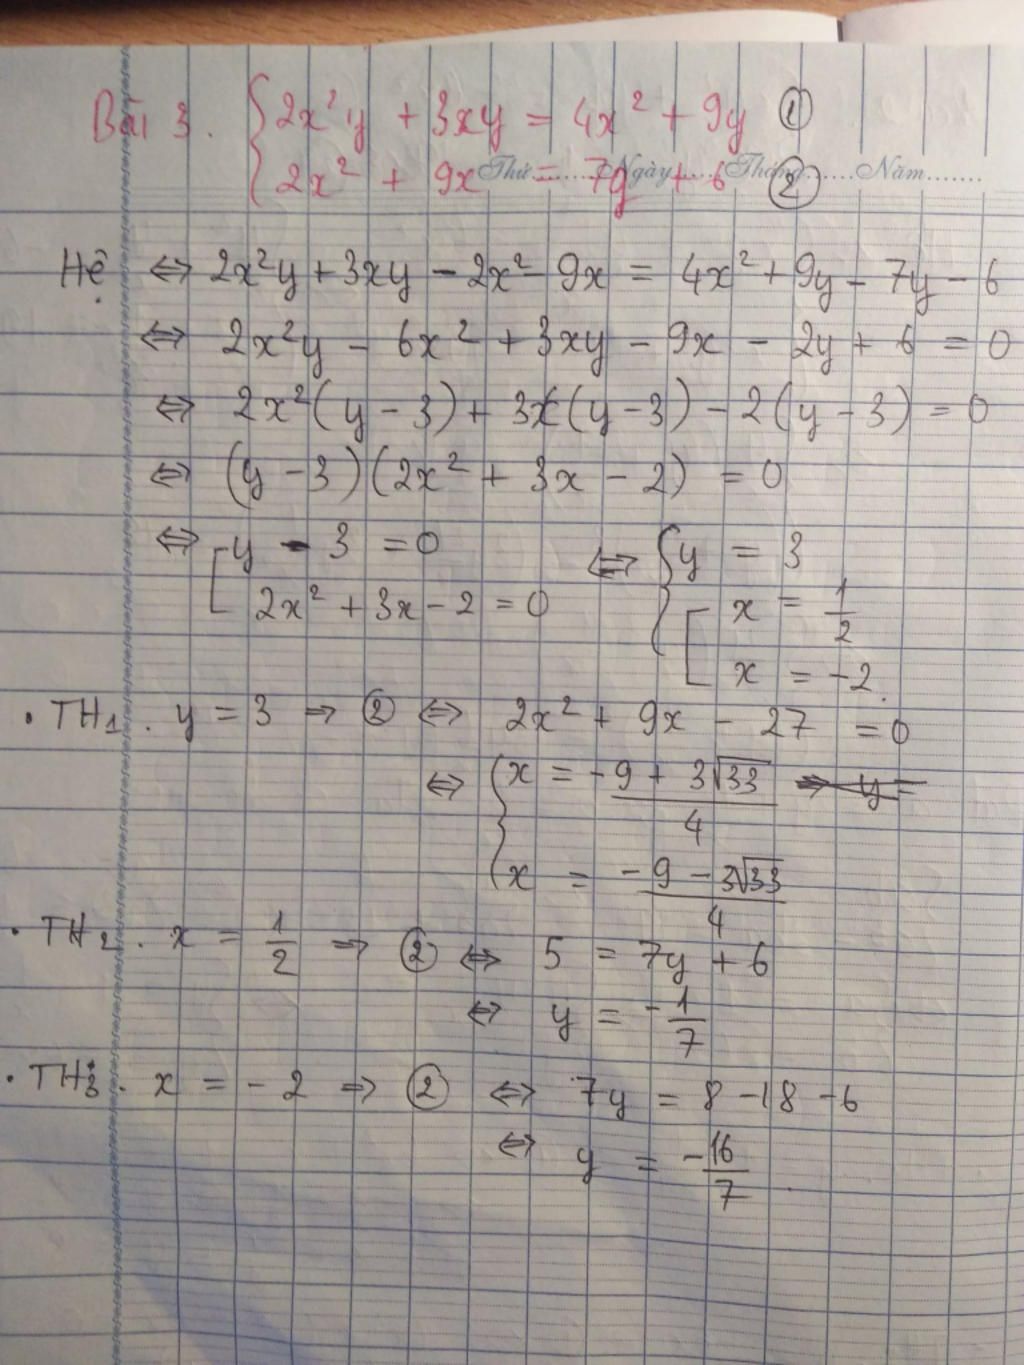 Bài 3. { 2x²y + 3xy = 4x² + 9y ①
2x² + 9x = 7y + 6 ②
Thứ........Ngày........Tháng........Năm........
Hệ ⇔ 2x²y + 3xy - 2x² - 9x = 4x² + 9y - 7y - 6
⇔ 2x²y - 6x² + 3xy - 9x - 2y + 6 = 0
⇔ 2x²(y - 3) + 3x(y - 3) - 2(y - 3) = 0
⇔ (y - 3)(2x² + 3x - 2) = 0
⇔ [ y - 3 = 0 ⇔ { y = 3
2x² + 3x - 2 = 0 [ x = 1/2
x = -2.
• TH1. y = 3 ⇒ ② ⇔ 2x² + 9x - 27 = 0
⇔ { x = (-9 + 3√33)/4 ⇒ y =
x = (-9 - 3√33)/4
• TH2. x = 1/2 ⇒ ② ⇔ 5 = 7y + 6
⇔ y = -1/7
• TH3. x = -2 ⇒ ② ⇔ 7y = 8 - 18 - 6
⇔ y = -16/7